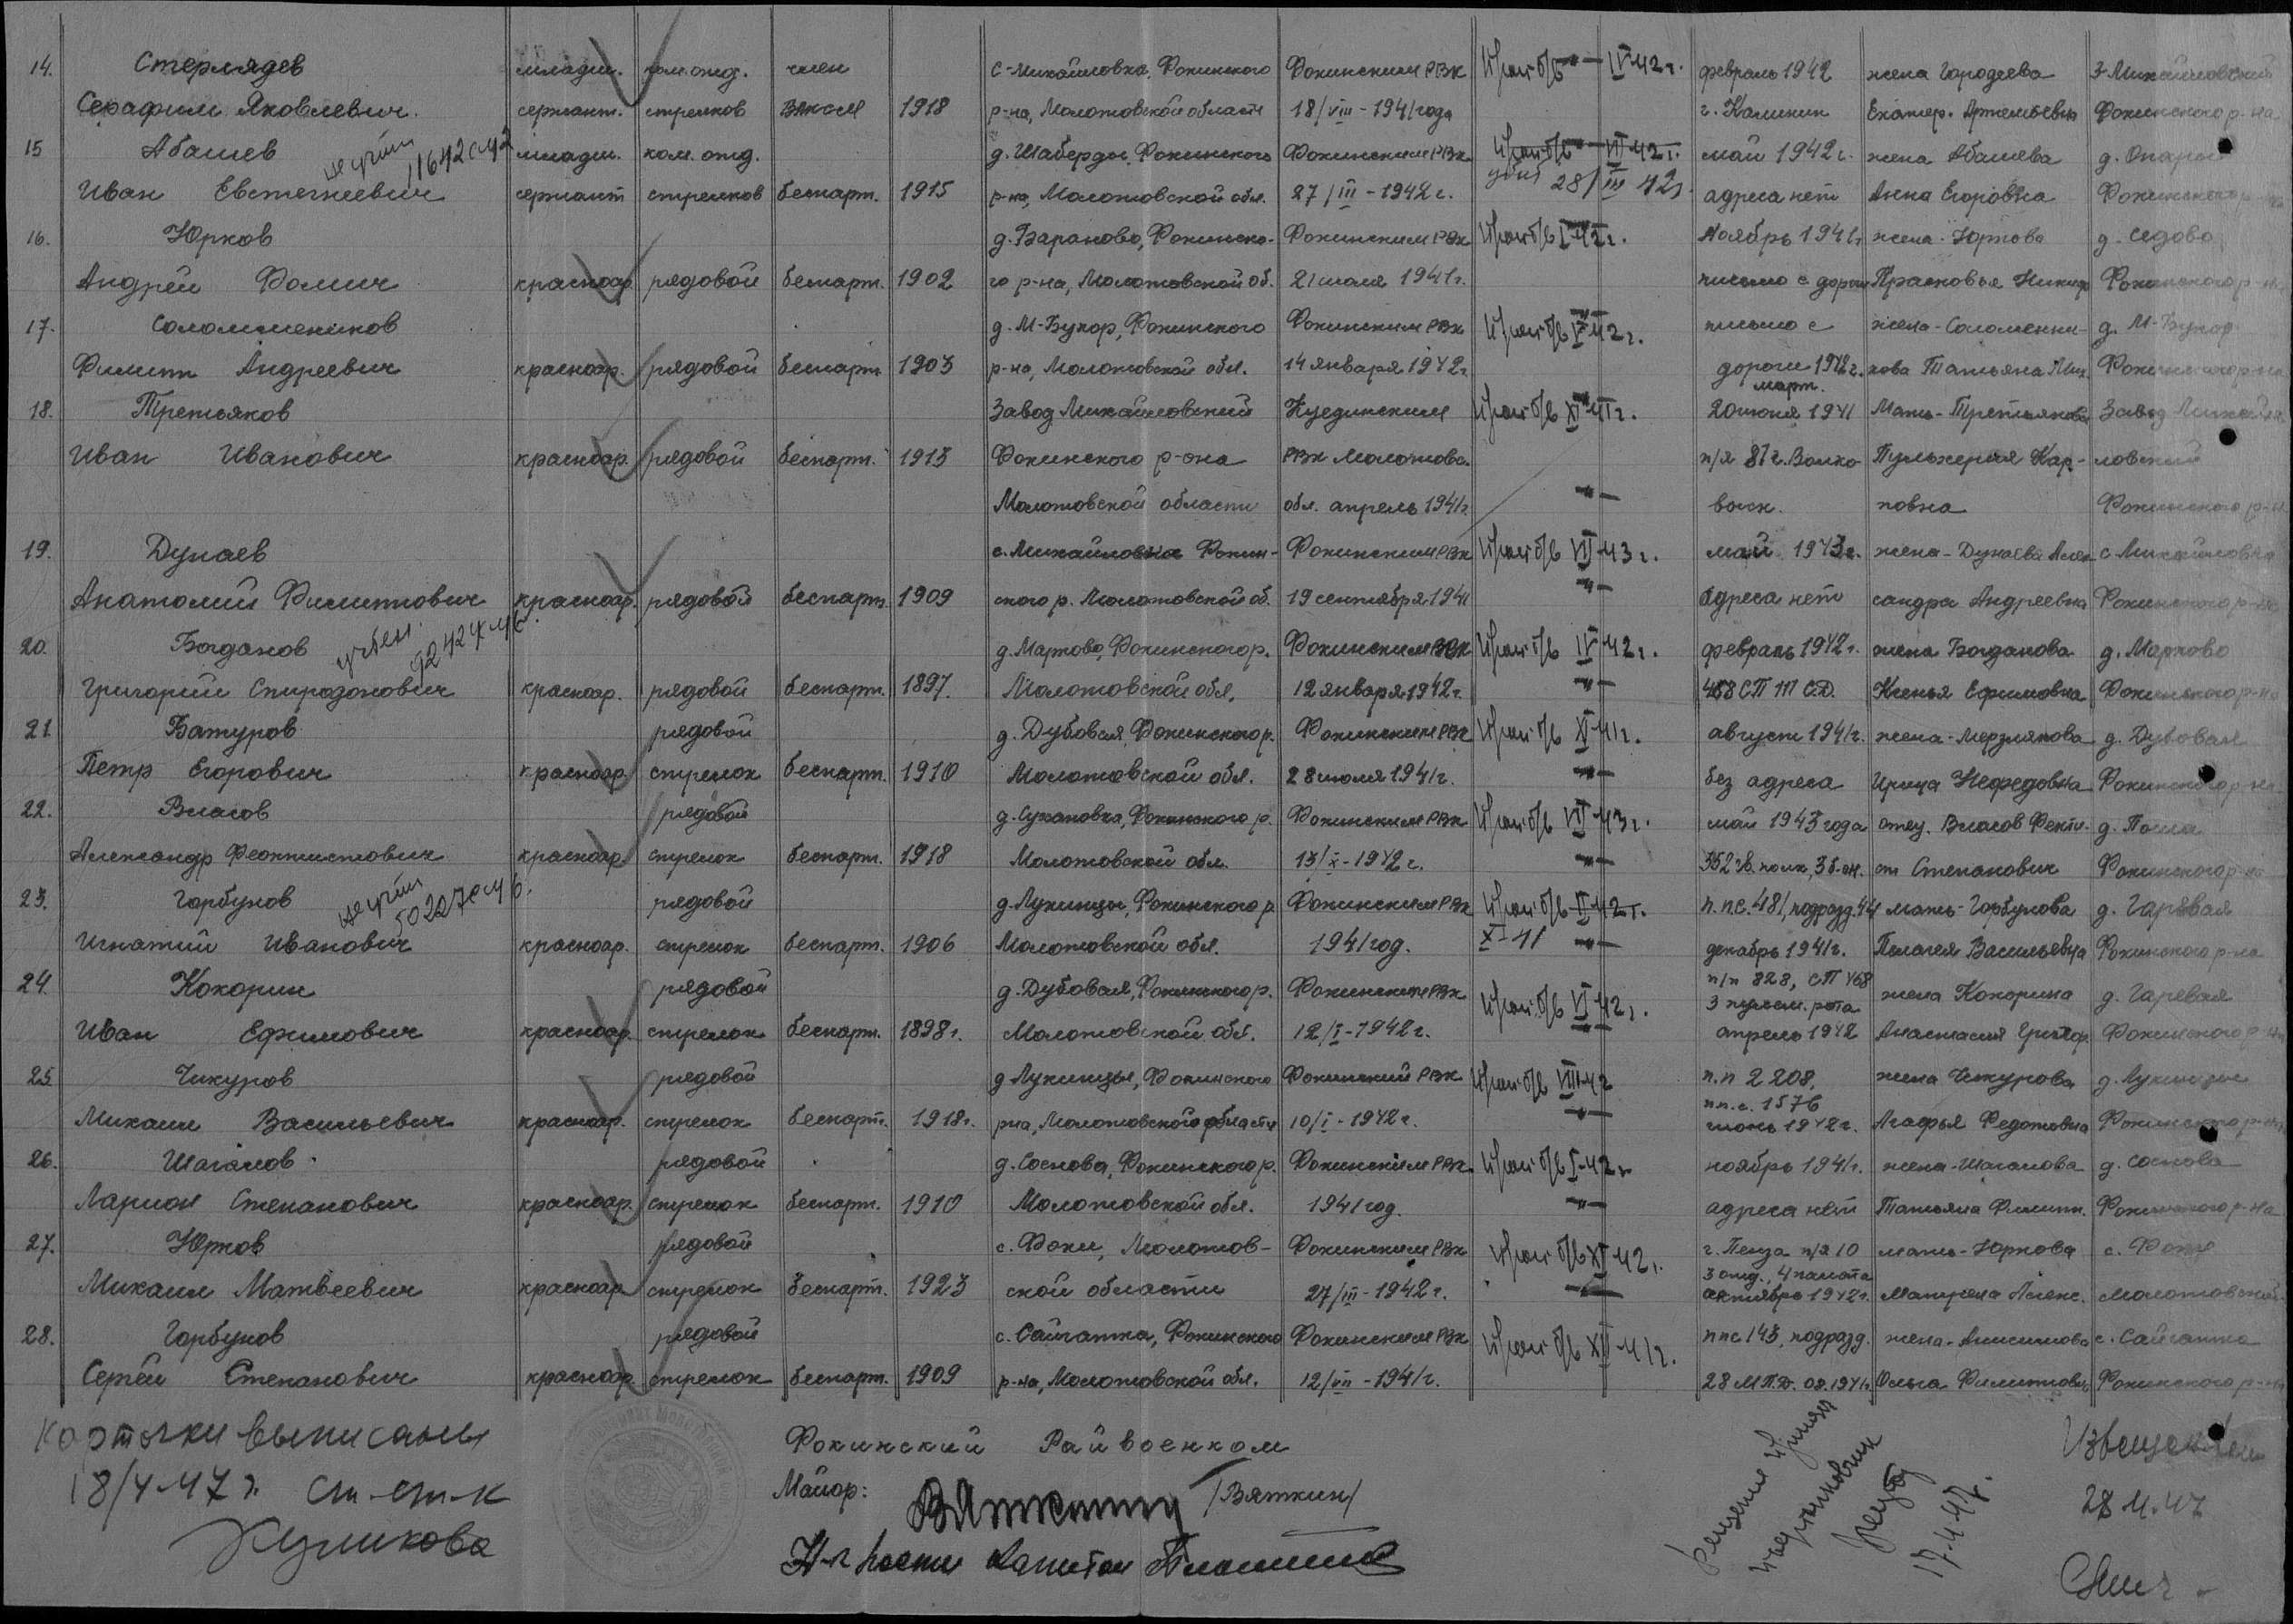 14. Стерлядев младш. ком. отд. член с-Михайловка, Фокинского Фокинским РВК Проп б/в IV-42 г. февраль 1942 жена Городеева З-Михайловский
Серафим Яковлевич. сержант. стрелков ВЛКСМ 1918 р-на, Молотовской области 18/VIII-1941 года г. Калинин Екатер. Артемьевна Фокинского р-на
15 Абашев не учтён 11642 с 42 младш. ком. отд. д. Шаберды, Фокинского Фокинским РВК Проп б/в VII-42 г. май 1942 г. жена Абашева д. Опары
Иван Евстегнеевич сержант стрелков беспарт. 1915 р-на, Молотовской обл. 27/III-1942 г. убит 28/III 42 г. адреса нет Анна Егоровна Фокинского р-на
16. Юрков д. Бараново, Фокинско- Фокинским РВК Проп б/в I-42 г. Ноябрь 1941 г. жена-Юркова д. Седово
Андрей Фомич красноар. рядовой беспарт. 1902 го р-на, Молотовской об. 21 июля 1941 г. письмо с дороги Прасковья Никиф Фокинского р-на
17. Соломенников д. М-Букор, Фокинского Фокинским РВК Проп б/в V-42 г. письмо с жена-Соломенни- д. М-Букор
Филипп Андреевич красноар. рядовой беспарт 1903 р-на, Молотовской обл. 14 января 1942 г. дороги 1942 г. кова Татьяна Мих. Фокинского р-на
март.
18. Третьяков Завод Михайловский Куединским Проп б/в XI-41 г. 20 июня 1941 Мать-Третьякова Завод Михай
Иван Иванович красноар. рядовой беспарт. 1913 Фокинского р-она РВК Молотовс. п/я 81 г. Волко- Пульхерия Кар- ловский
Молотовской области обл. апрель 1941 г. -"- выск. повна Фокинского р-на
19. Дунаев с. Михайловка Фокин- Фокинским РВК Проп б/в VII-43 г. май 1943 г. жена-Дунаева Алек- с. Михайловка
Анатолий Филиппович красноар. рядовой беспарт. 1909 ского р. Молотовской об. 19 сентября 1941 -"- адреса нет сандра Андреевна Фокинского р-на
20. Богданов учтен. 92424 д. Марково, Фокинского р. Фокинским РВК Проп б/в IV-42 г. февраль 1942 г. жена Богданова д. Марково
Григорий Спиридонович красноар. рядовой беспарт. 1897. Молотовской обл. 12 января 1942 г. -"- 468 СП 111 СД. Ксенья Ефимовна Фокинского р-на
21. Батуров рядовой д. Дубовая, Фокинского р. Фокинским РВК Проп б/в XI-41 г. август 1941 г. жена-Мерзлякова д. Дубовая
Петр Егорович красноар. стрелок беспарт. 1910 Молотовской обл. 28 июля 1941 г. -"- без адреса Ирина Нефедовна Фокинского р-на
22. Власов рядовой д. Сухановка, Фокинского р. Фокинским РВК Проп б/в VII-43 г. май 1943 года отец. Власов Фекти- д. Поша
Александр Феоктистович красноар. стрелок беспарт. 1918 Молотовской обл. 13/X-1942 г. -"- 352 гв. полк, 3 б-он. ст Степанович Фокинского р-на
23. Горбунов не учтён 50227 с 46. рядовой д. Лукинцы, Фокинского р. Фокинским РВК Проп б/в II-42 г. п.п.с. 481, подразд. 44 мать-Горбунова д. Гаревая
Игнатий Иванович красноар. стрелок беспарт. 1906 Молотовской обл. 1941 год. X-41 -"- декабрь 1941 г. Пелагея Васильевна Фокинского р-на
24. Кокорин рядовой д. Дубовая, Фокинского р. Фокинским РВК Проп б/в VI-42 г. п/п 828, СП 468 жена Кокорина д. Гаревая
3 пулем. рота
Иван Ефимович красноар. стрелок беспарт. 1898 г. Молотовской обл. 12/I-1942 г. -"- апрель 1942 Анастасия Григор. Фокинского р-на
25. Чикуров рядовой д Лукинцы, Фокинского Фокинский РВК Проп б/в VIII-42 п.п 2208, жена Чикурова д. Лукинцы
п.п.с. 1576
Михаил Васильевич красноар. стрелок беспарт. 1918 г. рна, Молотовской области 10/I-1942 г. -"- июнь 1942 г. Агафья Федотовна Фокинского р-на
26. Шагалов рядовой д. Соснова, Фокинского р. Фокинским РВК. Проп б/в I-42 г. ноябрь 1941 г. жена-Шагалова д. Соснова
Ларион Степанович красноар. стрелок беспарт. 1910 Молотовской обл. 1941 год. -"- адреса нет Татьяна Филипп. Фокинского р-на
27. Юрков рядовой с. Фоки, Молотов- Фокинским РВК Проп б/в XII-42 г. г. Пенза п/я 10 мать-Юркова с. Фоки
3 отд., 4 палата
Михаил Матвеевич красноар. стрелок беспарт. 1923 ской области 27/III-1942 г. -"- октябрь 1942 г. Матрена Алекс. Молотовской
28. Горбунов рядовой с. Сайгатка, Фокинского Фокинским РВК Проп б/в XII-41 г. ппс 143, подразд. жена-Анисимова с. Сайгатка
Сергей Степанович красноар. стрелок беспарт. 1909 р-на, Молотовской обл. 12/VII-1941 г. 28 М.П.Д. 09.1941 Ольга Филипповна Фокинского р-на
Карточки выписаны
18/4-47 г. ст-ст-к
Куликова
Фокинский Райвоенком
Майор: Вяткин /Вяткин/
Н-к части Капитан
решение принял
17.4.47.
Извещен
28.4.47